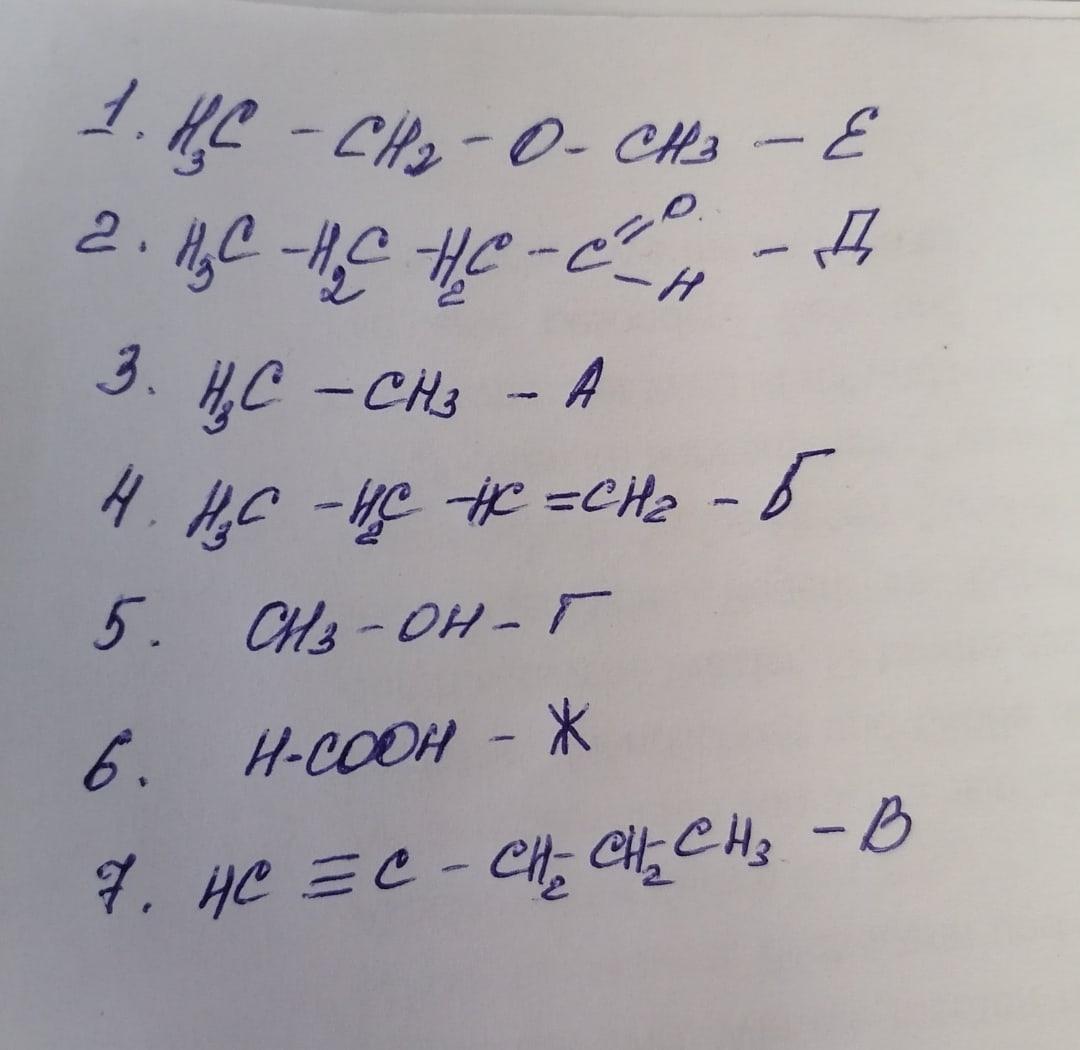 1. H₃C - CH₂ - O - CH₃ - Е
2. H₃C - H₂C - H₂C - C =O -H - Д
3. H₃C - CH₃ - А
4. H₃C - H₂C - HC = CH₂ - Б
5. CH₃ - OH - Г
6. H-COOH - Ж
7. HC ≡ C - CH₂- CH₂- CH₃ - В